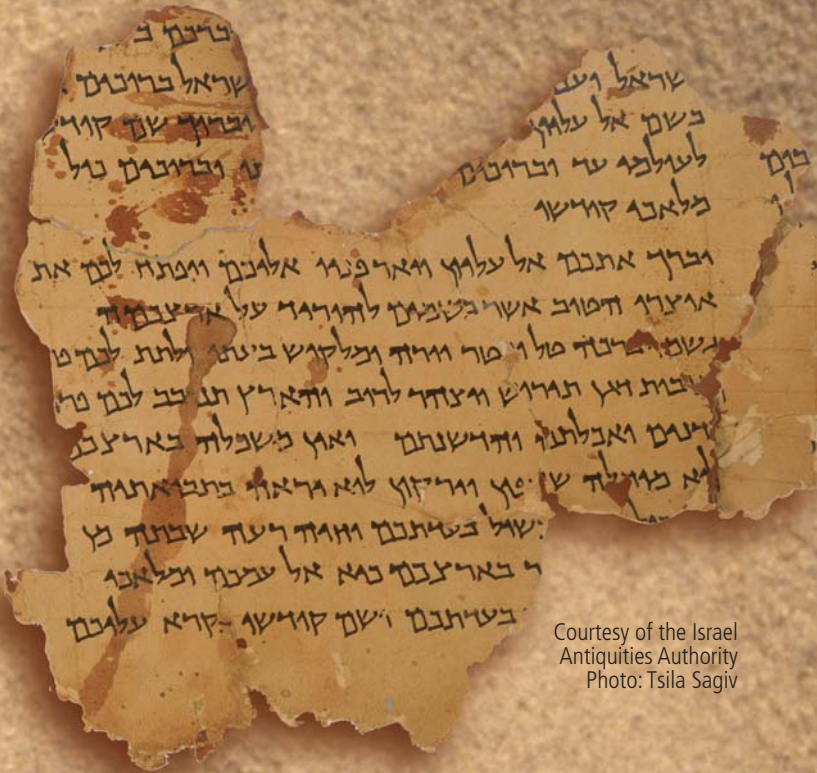 ברכם ב
שראל וענ שראל ברוכים
בשם אל עליון וברוך שם קודש
לעולמי עד וברוכים תו וברוכים כול
מלאכי קודשו
יברך אתכם אל עליון ויאר פניו אליכם ויפתח לכם את
אוצרו הטוב אשר בשמים להוריד על ארצכמה
גשמי ברכה טל ומטר יורה ומלקוש בעתו ולתת לכם פ
תירוש ויצהר לרוב והארץ תנובב לכם פרי
דנים ואכלתם והדשנתם ואין משכלה בארצכם
ולא מוחלה וירקון לוא יראה בתבואתיה
שול בעדתכם וחיה רעה שבתה מן
ר בארצכם כיא אל עמכם ומלאכי
בעדתכם ושם קודשו נקרא עליכם
Courtesy of the Israel
Antiquities Authority
Photo: Tsila Sagiv